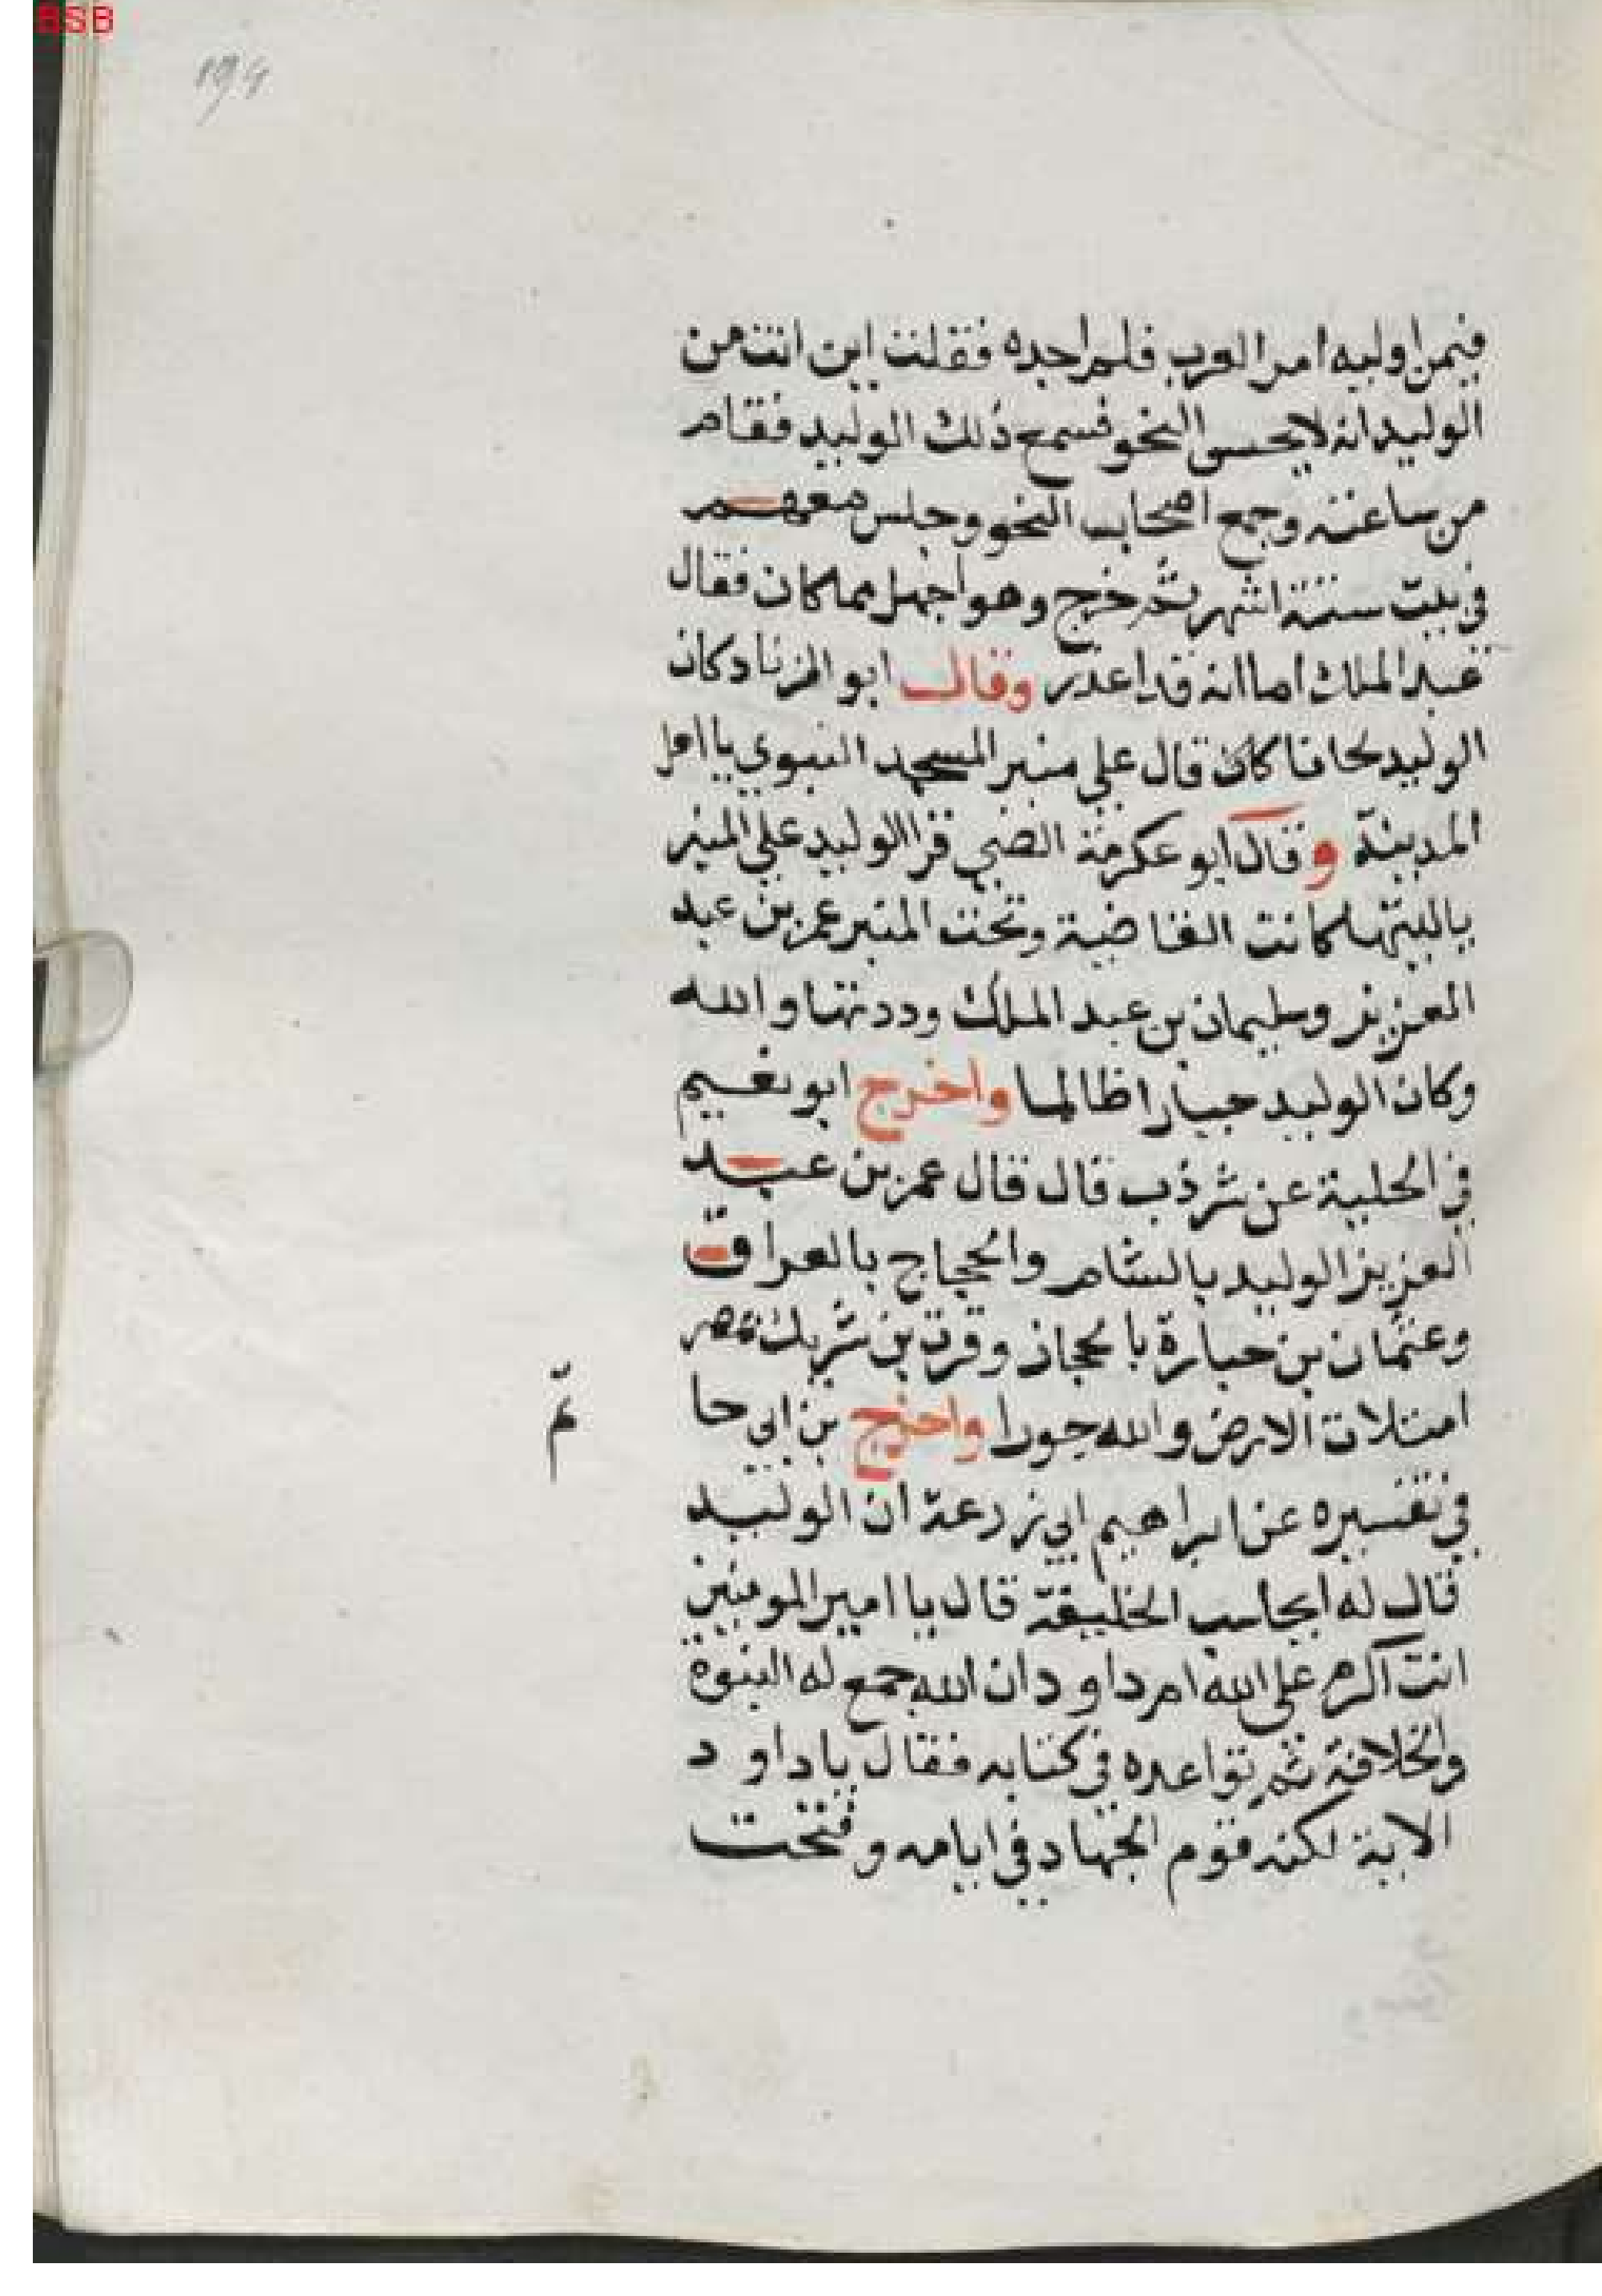 BSB
194
فيمن اوليه امر العرب فلم اجده فقلت اين انت من
الوليد انه لا يحسن النحو فسمع ذلك الوليد فقام
من ساعته وجمع اصحاب النحو وجلس معهم
في بيت ستة اشهر ثم خرج وهو اجهل مما كان فقال
عبد الملك اما انه قد اعذر وقال ابو الزناد كان
الوليد لحانا كان قال علي منبر المسجد النبوي يا اهل
المدينة وقال ابو عكرمة الضبي قرا الوليد علي المنبر
ياليتها كانت القاضية وتحت المنبر عمر بن عبد
العزيز وسليمان بن عبد الملك وددتها والله
وكان الوليد جبارا ظالما واخرج ابو نعيم
في الحلية عن شرذب قال قال عمر بن عبد
العزيز الوليد بالشام والحجاج بالعراق
وعثمان بن حبارة بالحجاز وقرة بن شريك بمصر
امتلات الارض والله جورا واخرج بن ابي حا
تم
في تفسيره عن ابراهيم ابي زرعة ان الوليد
قال له ايحاسب الخليفة قال يا امير المومنين
انت اكرم علي الله ام داود ان الله جمع له النبوة
والخلافة ثم تواعده في كتابه فقال ياداود
الاية لكنه قوم الجهاد في ايامه وفتحت